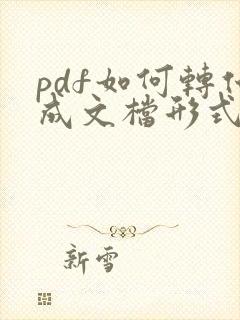 pdf如何轉
成文檔形式
新雪